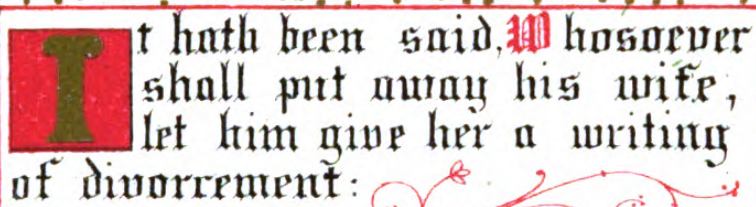 It hath been said, Whosoever
shall put away his wife,
let him give her a writing
of divorcement: